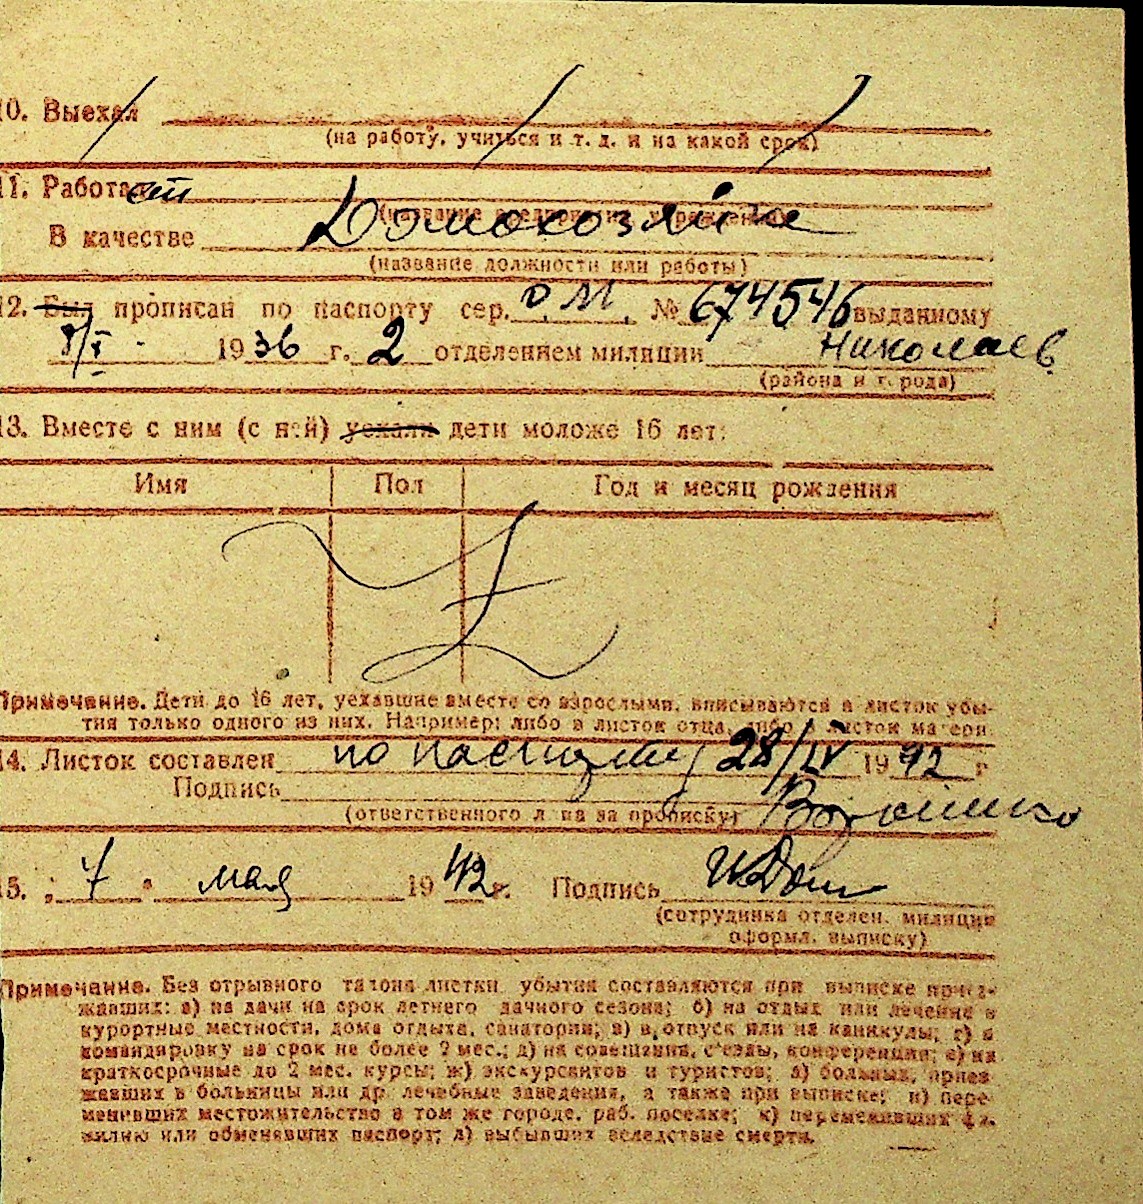 10. Выехал
(на работу, учиться и т. д. и на какой срок)
11. Работает
(название предприятия, учреждения)
В качестве Домохозяйка
(название должности или работы)
12. Был прописан по паспорту сер. О М № 674546 выданному
8/X 1936 г. 2 отделением милиции Николаев
(района и города)
13. Вместе с ним (с ней) уехали дети моложе 16 лет:
Имя Пол Год и месяц рождения
Z
Примечание. Дети до 16 лет, уехавшие вместе со взрослыми, вписываются в листок убы-
тия только одного из них. Например: либо в листок отца, либо в листок матери.
14. Листок составлен по паспорту 28/IV 1942 г
Подпись
(ответственного лица за прописку)
15. „7“ мая 1942 г. Подпись
(сотрудника отделен. милиции
оформл. выписку)
Примечание. Без отрывного талона листки убытия составляются при выписке приез-
жавших: а) на дачи на срок летнего дачного сезона; б) на отдых или лечение в
курортные местности, дома отдыха, санатории; в) в отпуск или на каникулы; г) в
командировку на срок не более 2 мес.; д) на совещания, съезды, конференции; е) на
краткосрочные до 2 мес. курсы; ж) экскурсантов и туристов; з) больных, приез-
жавших в больницы или др. лечебные заведения, а также при выписке; и) пере-
менивших местожительство в том же городе, раб. поселке; к) переменивших фа-
милию или обменявших паспорт; л) выбывших вследствие смерти.